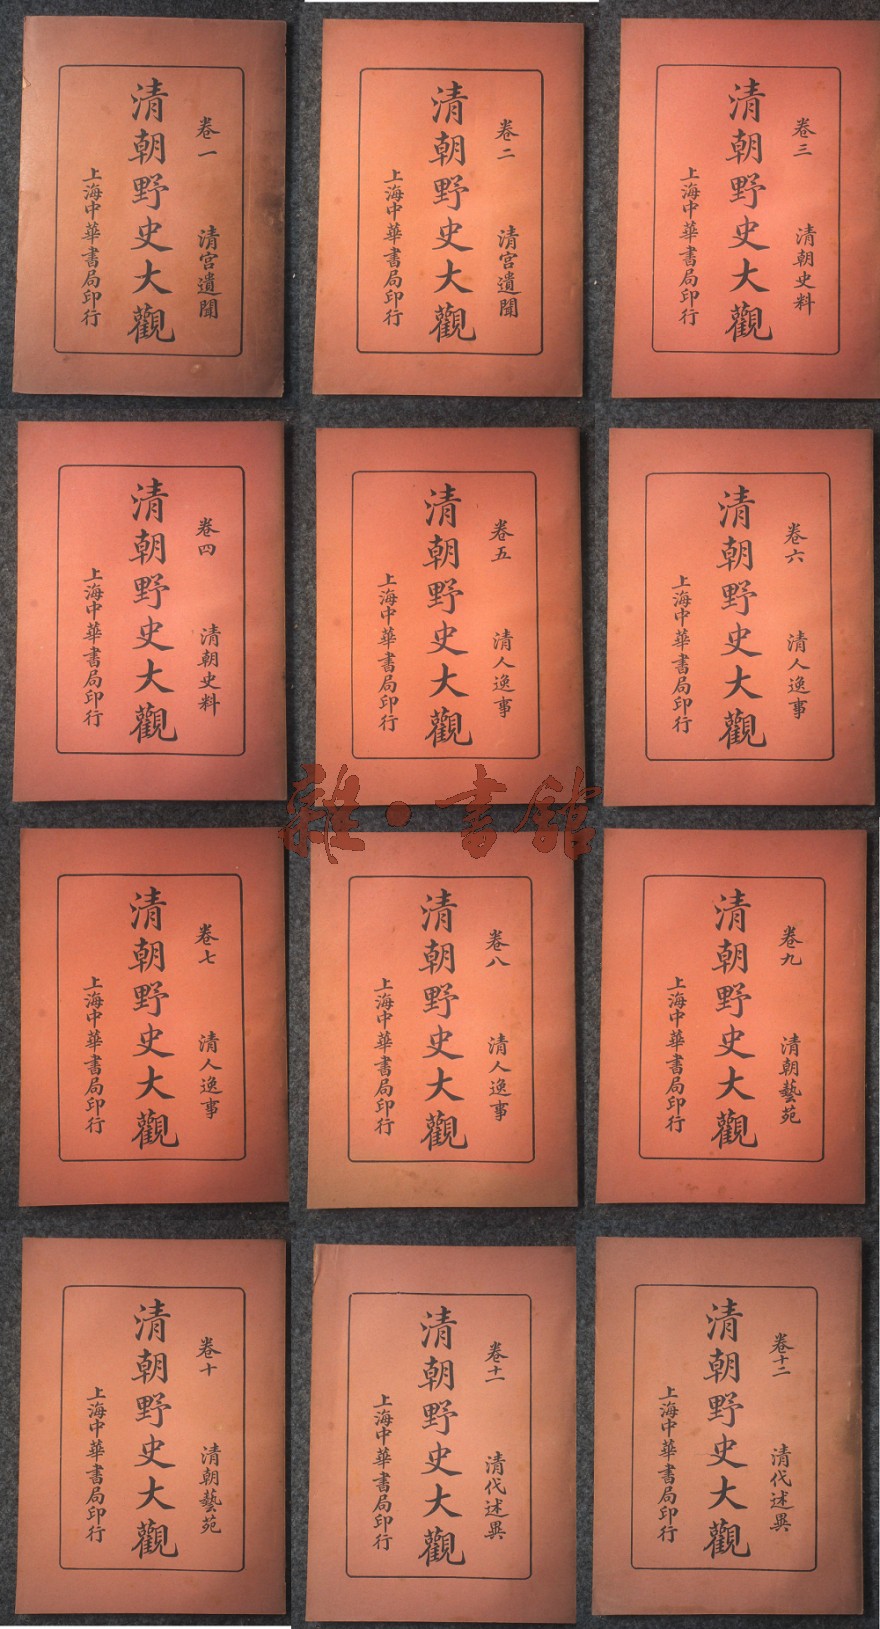 卷一 清宮遺聞
清朝野史大觀
上海中華書局印行
卷二 清宮遺聞
清朝野史大觀
上海中華書局印行
卷三 清朝史料
清朝野史大觀
上海中華書局印行
卷四 清朝史料
清朝野史大觀
上海中華書局印行
卷五 清人逸事
清朝野史大觀
上海中華書局印行
卷六 清人逸事
清朝野史大觀
上海中華書局印行
雜·書館
卷七 清人逸事
清朝野史大觀
上海中華書局印行
卷八 清人逸事
清朝野史大觀
上海中華書局印行
卷九 清朝藝苑
清朝野史大觀
上海中華書局印行
卷十 清朝藝苑
清朝野史大觀
上海中華書局印行
卷十一 清代述異
清朝野史大觀
上海中華書局印行
卷十二 清代述異
清朝野史大觀
上海中華書局印行